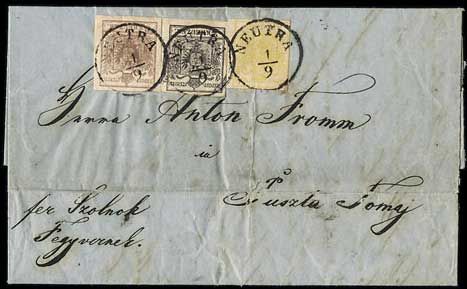 NEUTRA NEUTRA NEUTRA
1/9 1/9 1/9
Herrn Anton Fromm
in
Puszta Tomaj
per Szolnok
Fegyvernek.